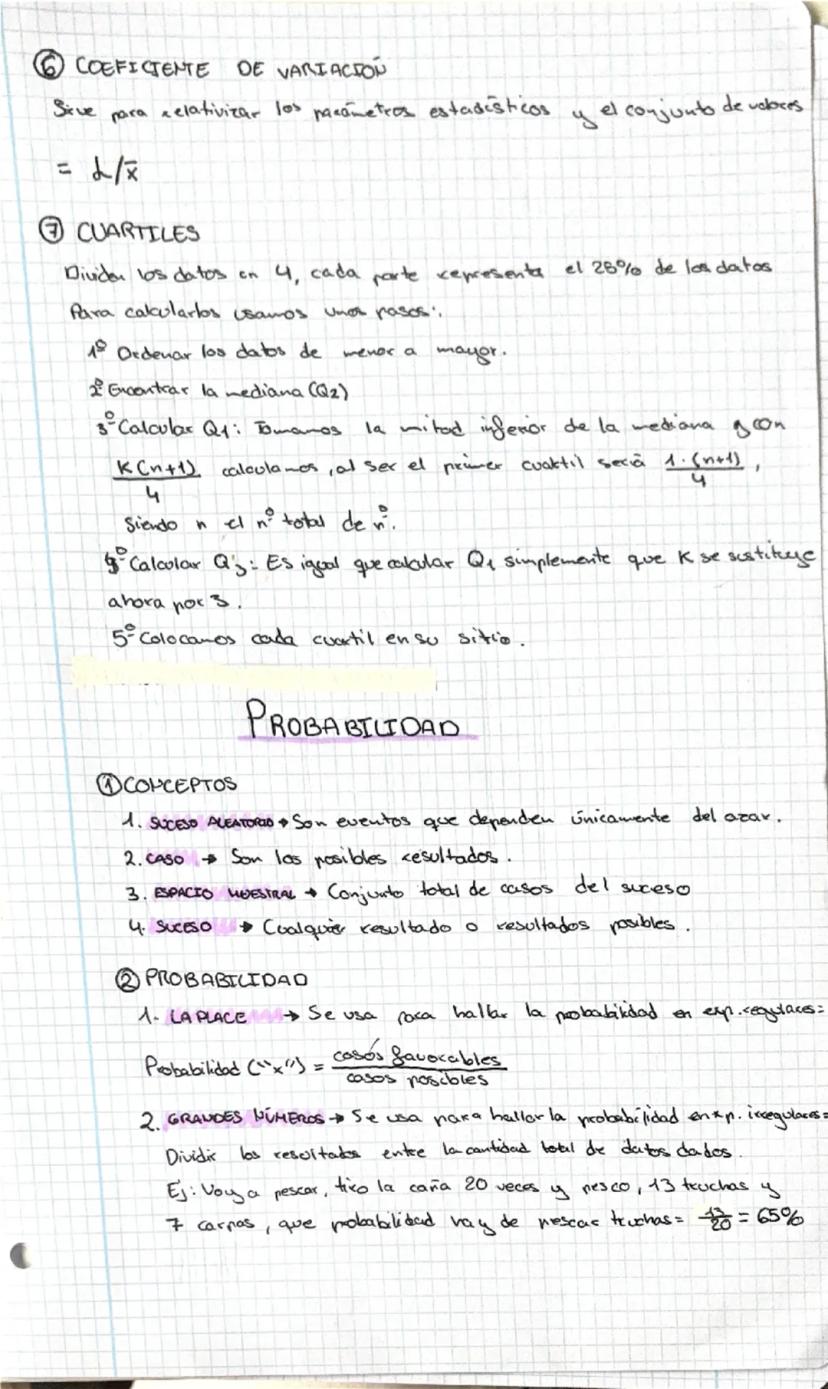 ⑥ COEFICIENTE DE VARIACIÓN
Sirve para relativizar los parámetros estadísticos y el conjunto de valores
= d/x̄
⑦ CUARTILES
Dividen los datos en 4, cada parte representa el 25% de los datos
Para calcularlos usamos unos pasos:
1º Ordenar los datos de menor a mayor.
2º Encontrar la mediana (Q2)
3º Calcular Q1: Tomamos la mitad inferior de la mediana y con
K(n+1)/4 calculamos, al ser el primer cuartil sería 1·(n+1)/4,
Siendo n el nº total de nº.
4º Calcular Q3: Es igual que calcular Q1 simplemente que K se sustituye
ahora por 3.
5º Colocamos cada cuartil en su sitio.
PROBABILIDAD
① CONCEPTOS
1. SUCESO ALEATORIO → Son eventos que dependen únicamente del azar.
2. CASO → Son los posibles resultados.
3. ESPACIO MUESTRAL → Conjunto total de casos del suceso
4. SUCESO → Cualquier resultado o resultados posibles.
② PROBABILIDAD
1. LA PLACE → Se usa para hallar la probabilidad en exp. regulares=
Probabilidad ("x") = casos favorables / casos posibles
2. GRANDES NÚMEROS → Se usa para hallar la probabilidad en xp. irregulares=
Dividir los resultados entre la cantidad total de datos dados.
Ej: Voy a pescar, tiro la caña 20 veces y pesco, 13 truchas y
7 carpas, que probabilidad hay de pescar truchas = 13/20 = 65%